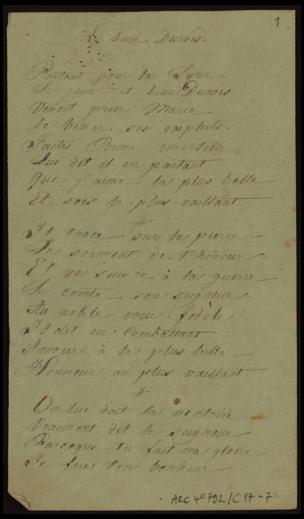 1
Le beau Dunois
Partant pour la Syrie
Le jeune et beau Dunois
Venoit prier Marie
De benir ses exploits.
Faites Reine immortelle
Lui dit il en partant
Que j'aime la plus belle
Et sois le plus vaillant
#
Il trace sur la pierre
Le serment de l'honneur
Et va suivre à la guerre
Le comte son seigneur
Au noble voeu fidèle
Il dit en combattant
Amour à la plus belle
Honneur au plus vaillant
#
On lui doit la victoire
Vraiment dit le seigneur
Puisque tu fait ma gloire
Je ferai ton bonheur
ARC 4° 792/C 17-7